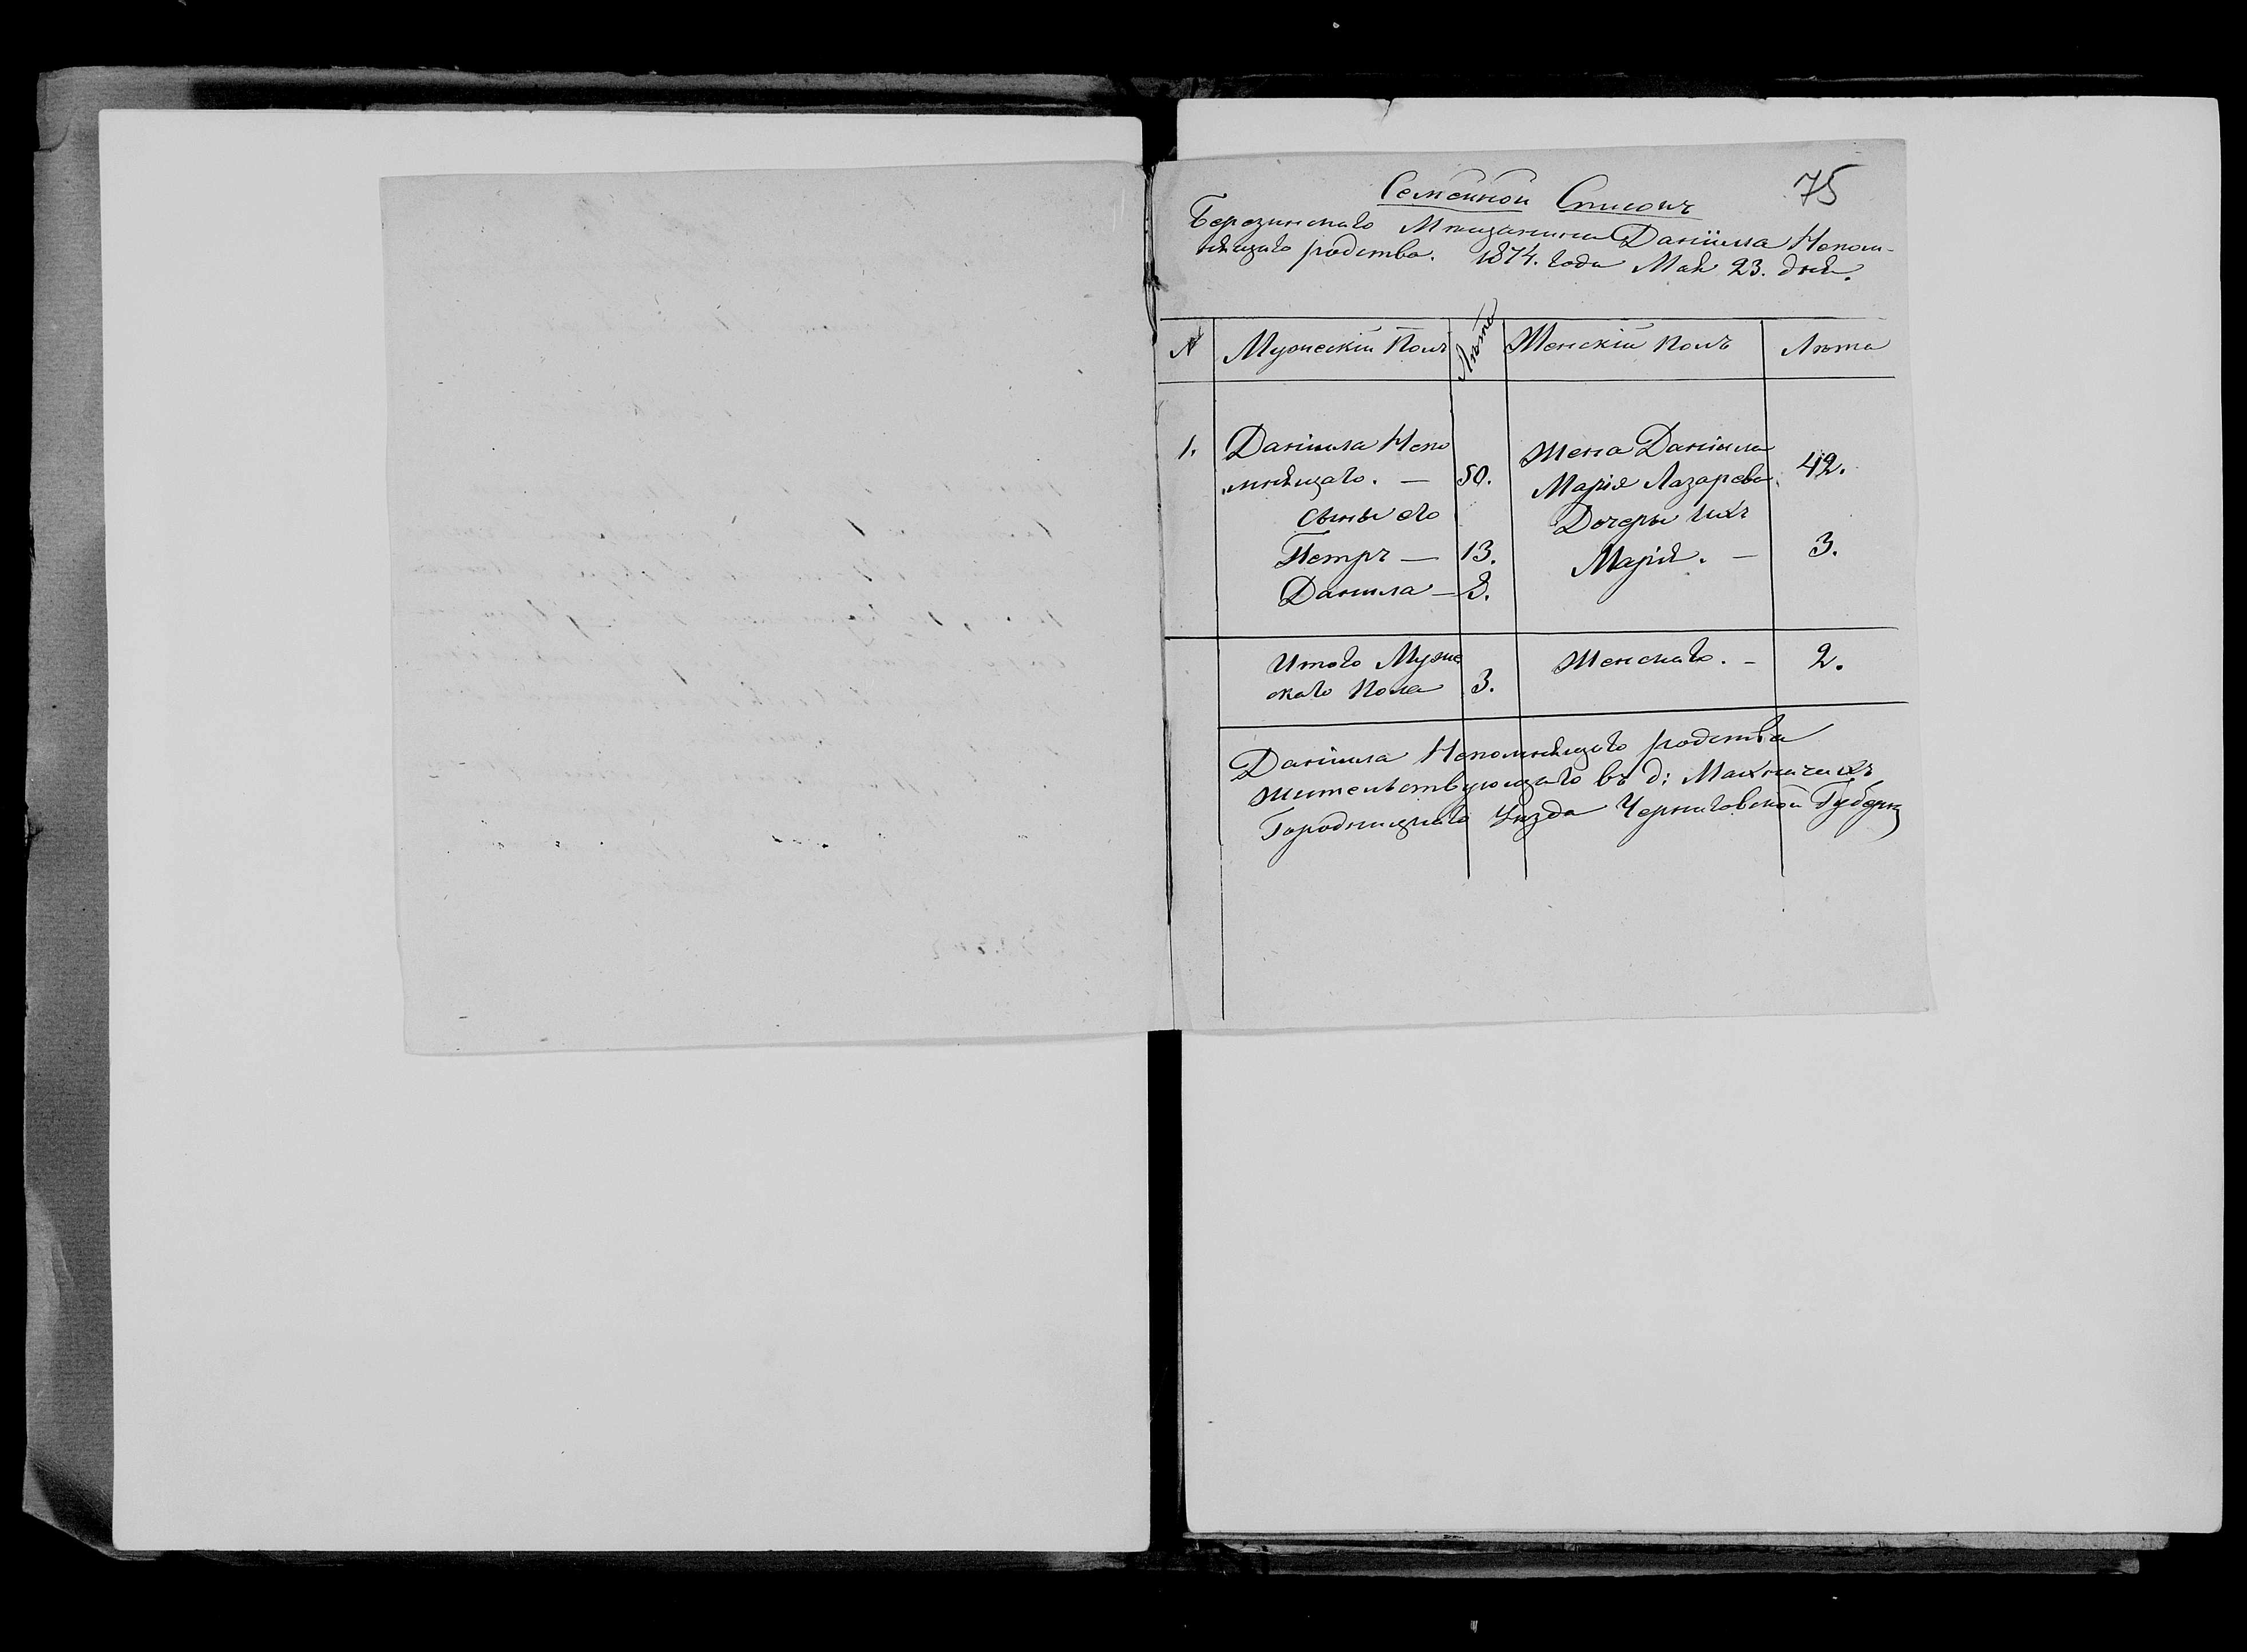 75
Семейной Списокъ
Березинскаго Мѣщанина Даніила Непом-
нящаго родства. 1874. года Мая 23. дня.
№ Мужескій Полъ Лѣта Женскій полъ Лѣта
1. Даніила Непо Жена Даніила
мнящаго. — 50. Марія Лазарева 42.
сыны его Дочеры ихъ
Петръ — 13. Марія. — 3.
Данила — 3.
Итого Муже Женскаго. — 2.
скаго Пола 3.
Даніила Непомнящаго родства
жительствующаго въ д: Махничахъ
Городницкаго Уѣзда Черниговской Губерн